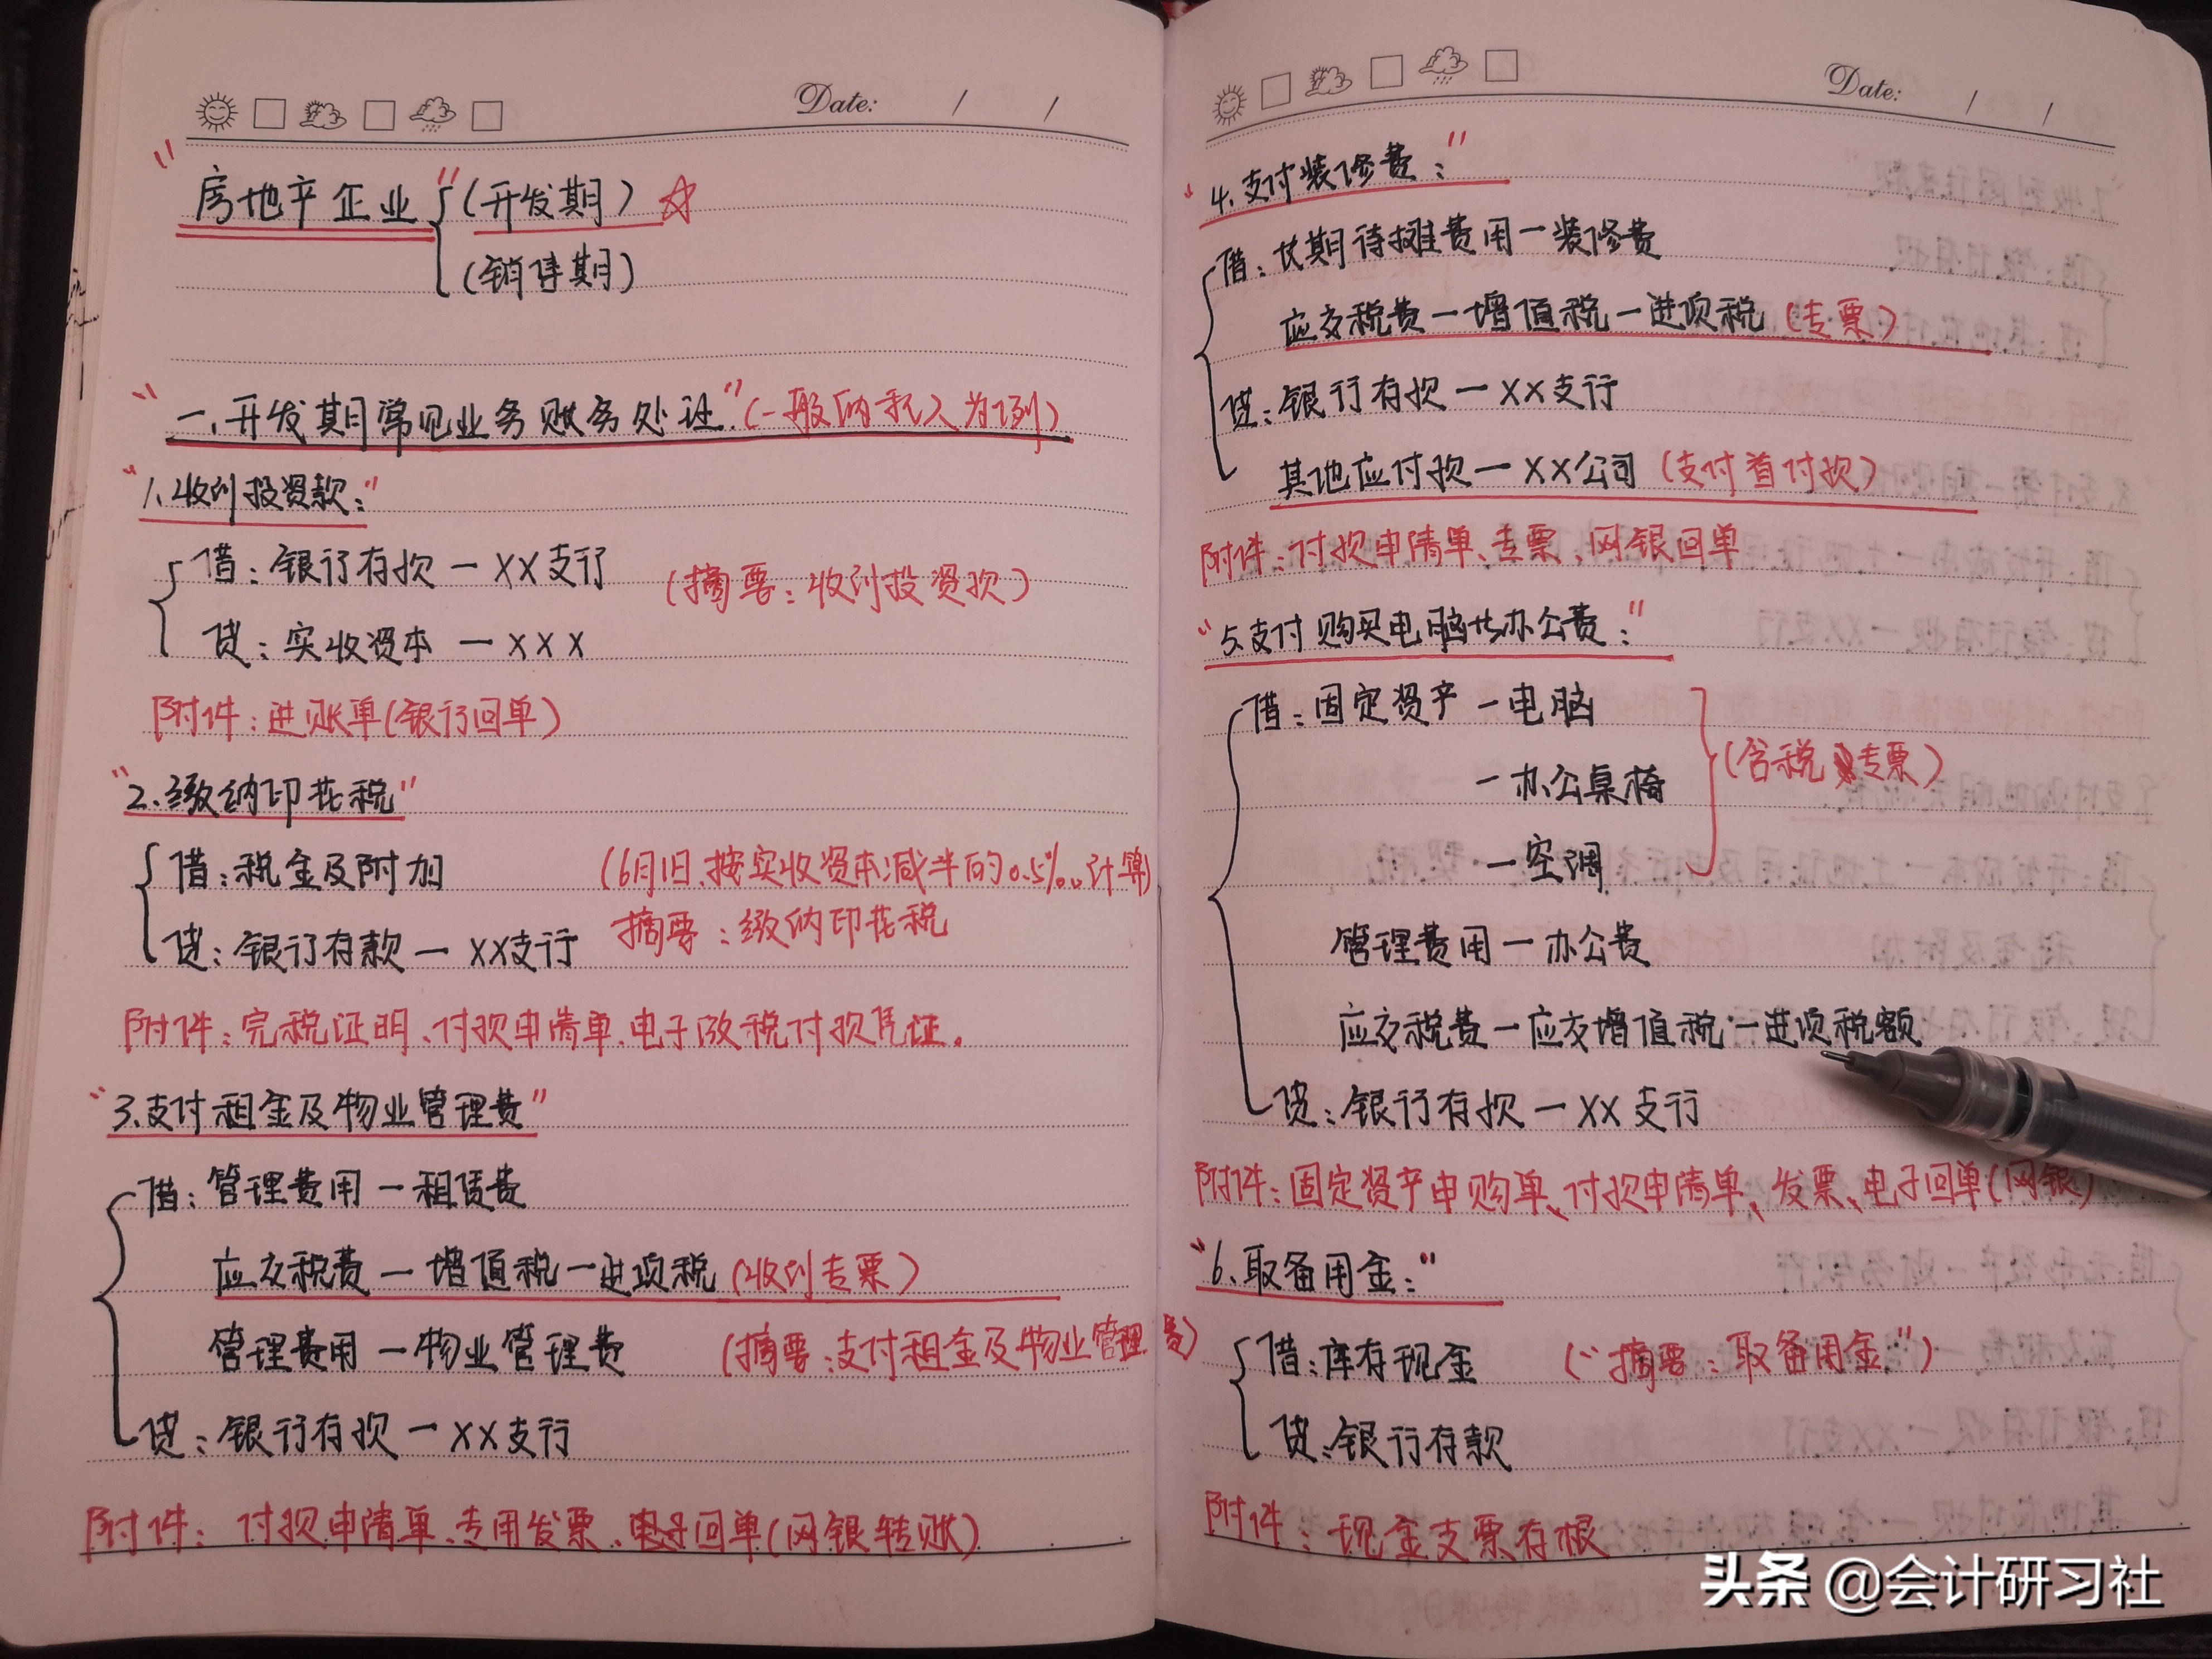 Date: / /
"房地产企业" (开发期) ☆
(销售期)
"一、开发期常见业务账务处理"(一般纳税人为例)
"1、收到投资款:"
借:银行存款一XX支行
(摘要:收到投资款)
贷:实收资本一XXX
附件:进账单(银行回单)
"2、缴纳印花税"
借:税金及附加
(6月1日、按实收资本减半的0.5‰计算)
贷:银行存款一XX支行
摘要:缴纳印花税
附件:完税证明、付款申请单、电子缴税付款凭证。
"3、支付租金及物业管理费"
借:管理费用一租赁费
应交税费一增值税一进项税(收到专票)
管理费用一物业管理费 (摘要:支付租金及物业管理费)
贷:银行存款一XX支行
附件:付款申请单、专用发票、电子回单(网银转账)
Date: / /
"4、支付装修费:"
借:长期待摊费用一装修费
应交税费一增值税一进项税(专票)
贷:银行存款一XX支行
其他应付款一XX公司(支付首付款)
附件:付款申请单、专票、网银回单
"5、支付购买电脑与办公费:"
借:固定资产一电脑
一办公桌椅
(含税 专票)
一空调
管理费用一办公费
应交税费一应交增值税一进项税额
贷:银行存款一XX支行
附件:固定资产申购单、付款申请单、发票、电子回单(网银)
"6、取备用金:"
借:库存现金 ("摘要:取备用金")
贷:银行存款
附件:现金支票存根
头条 @会计研习社